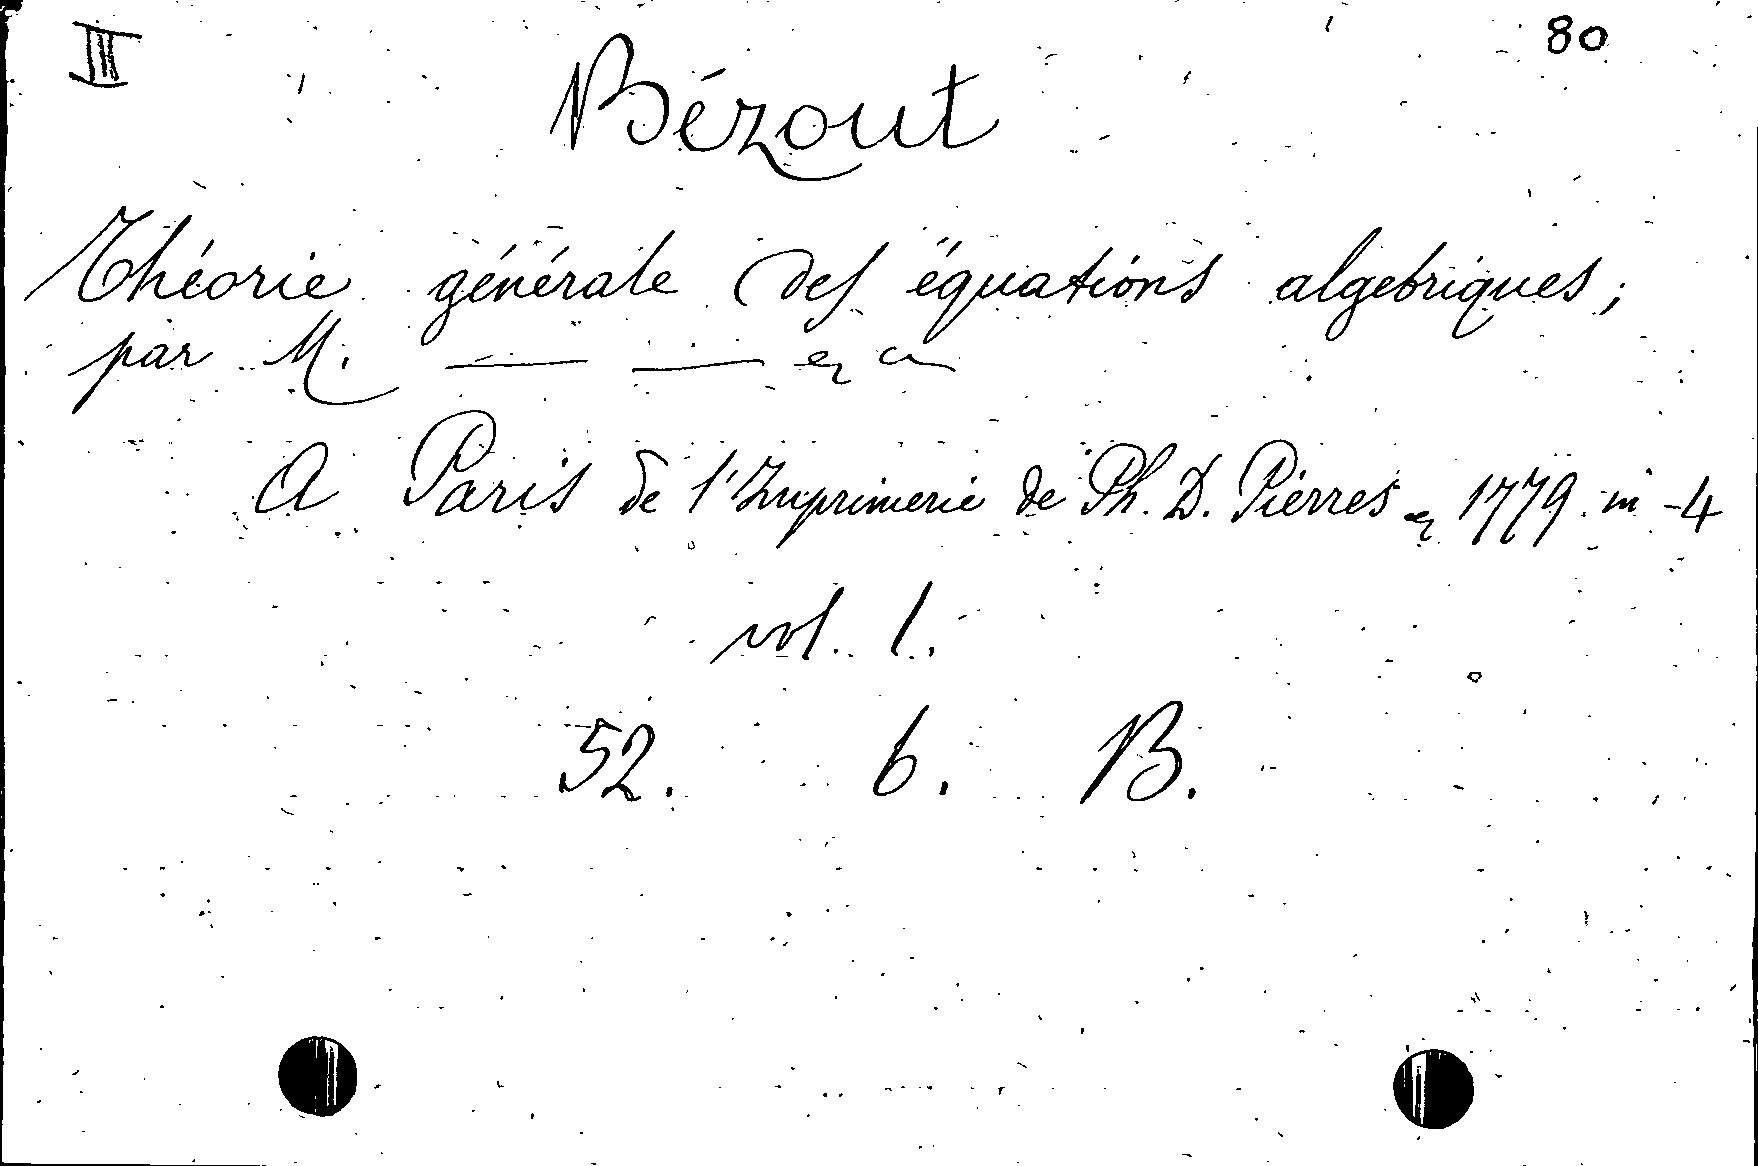 III 80
Bézout
Théorie générale des équations algebriques;
par M. — —
A Paris de l'Imprimerie de Ph. D. Pierres 1779 in-4
vol. 1.
52. b. B.